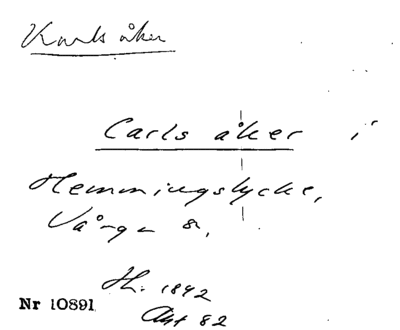 Karls åker
Carls åker i
Hemmingslycke,
Vånga s.
H. 1842
Akt 82
Nr 10891